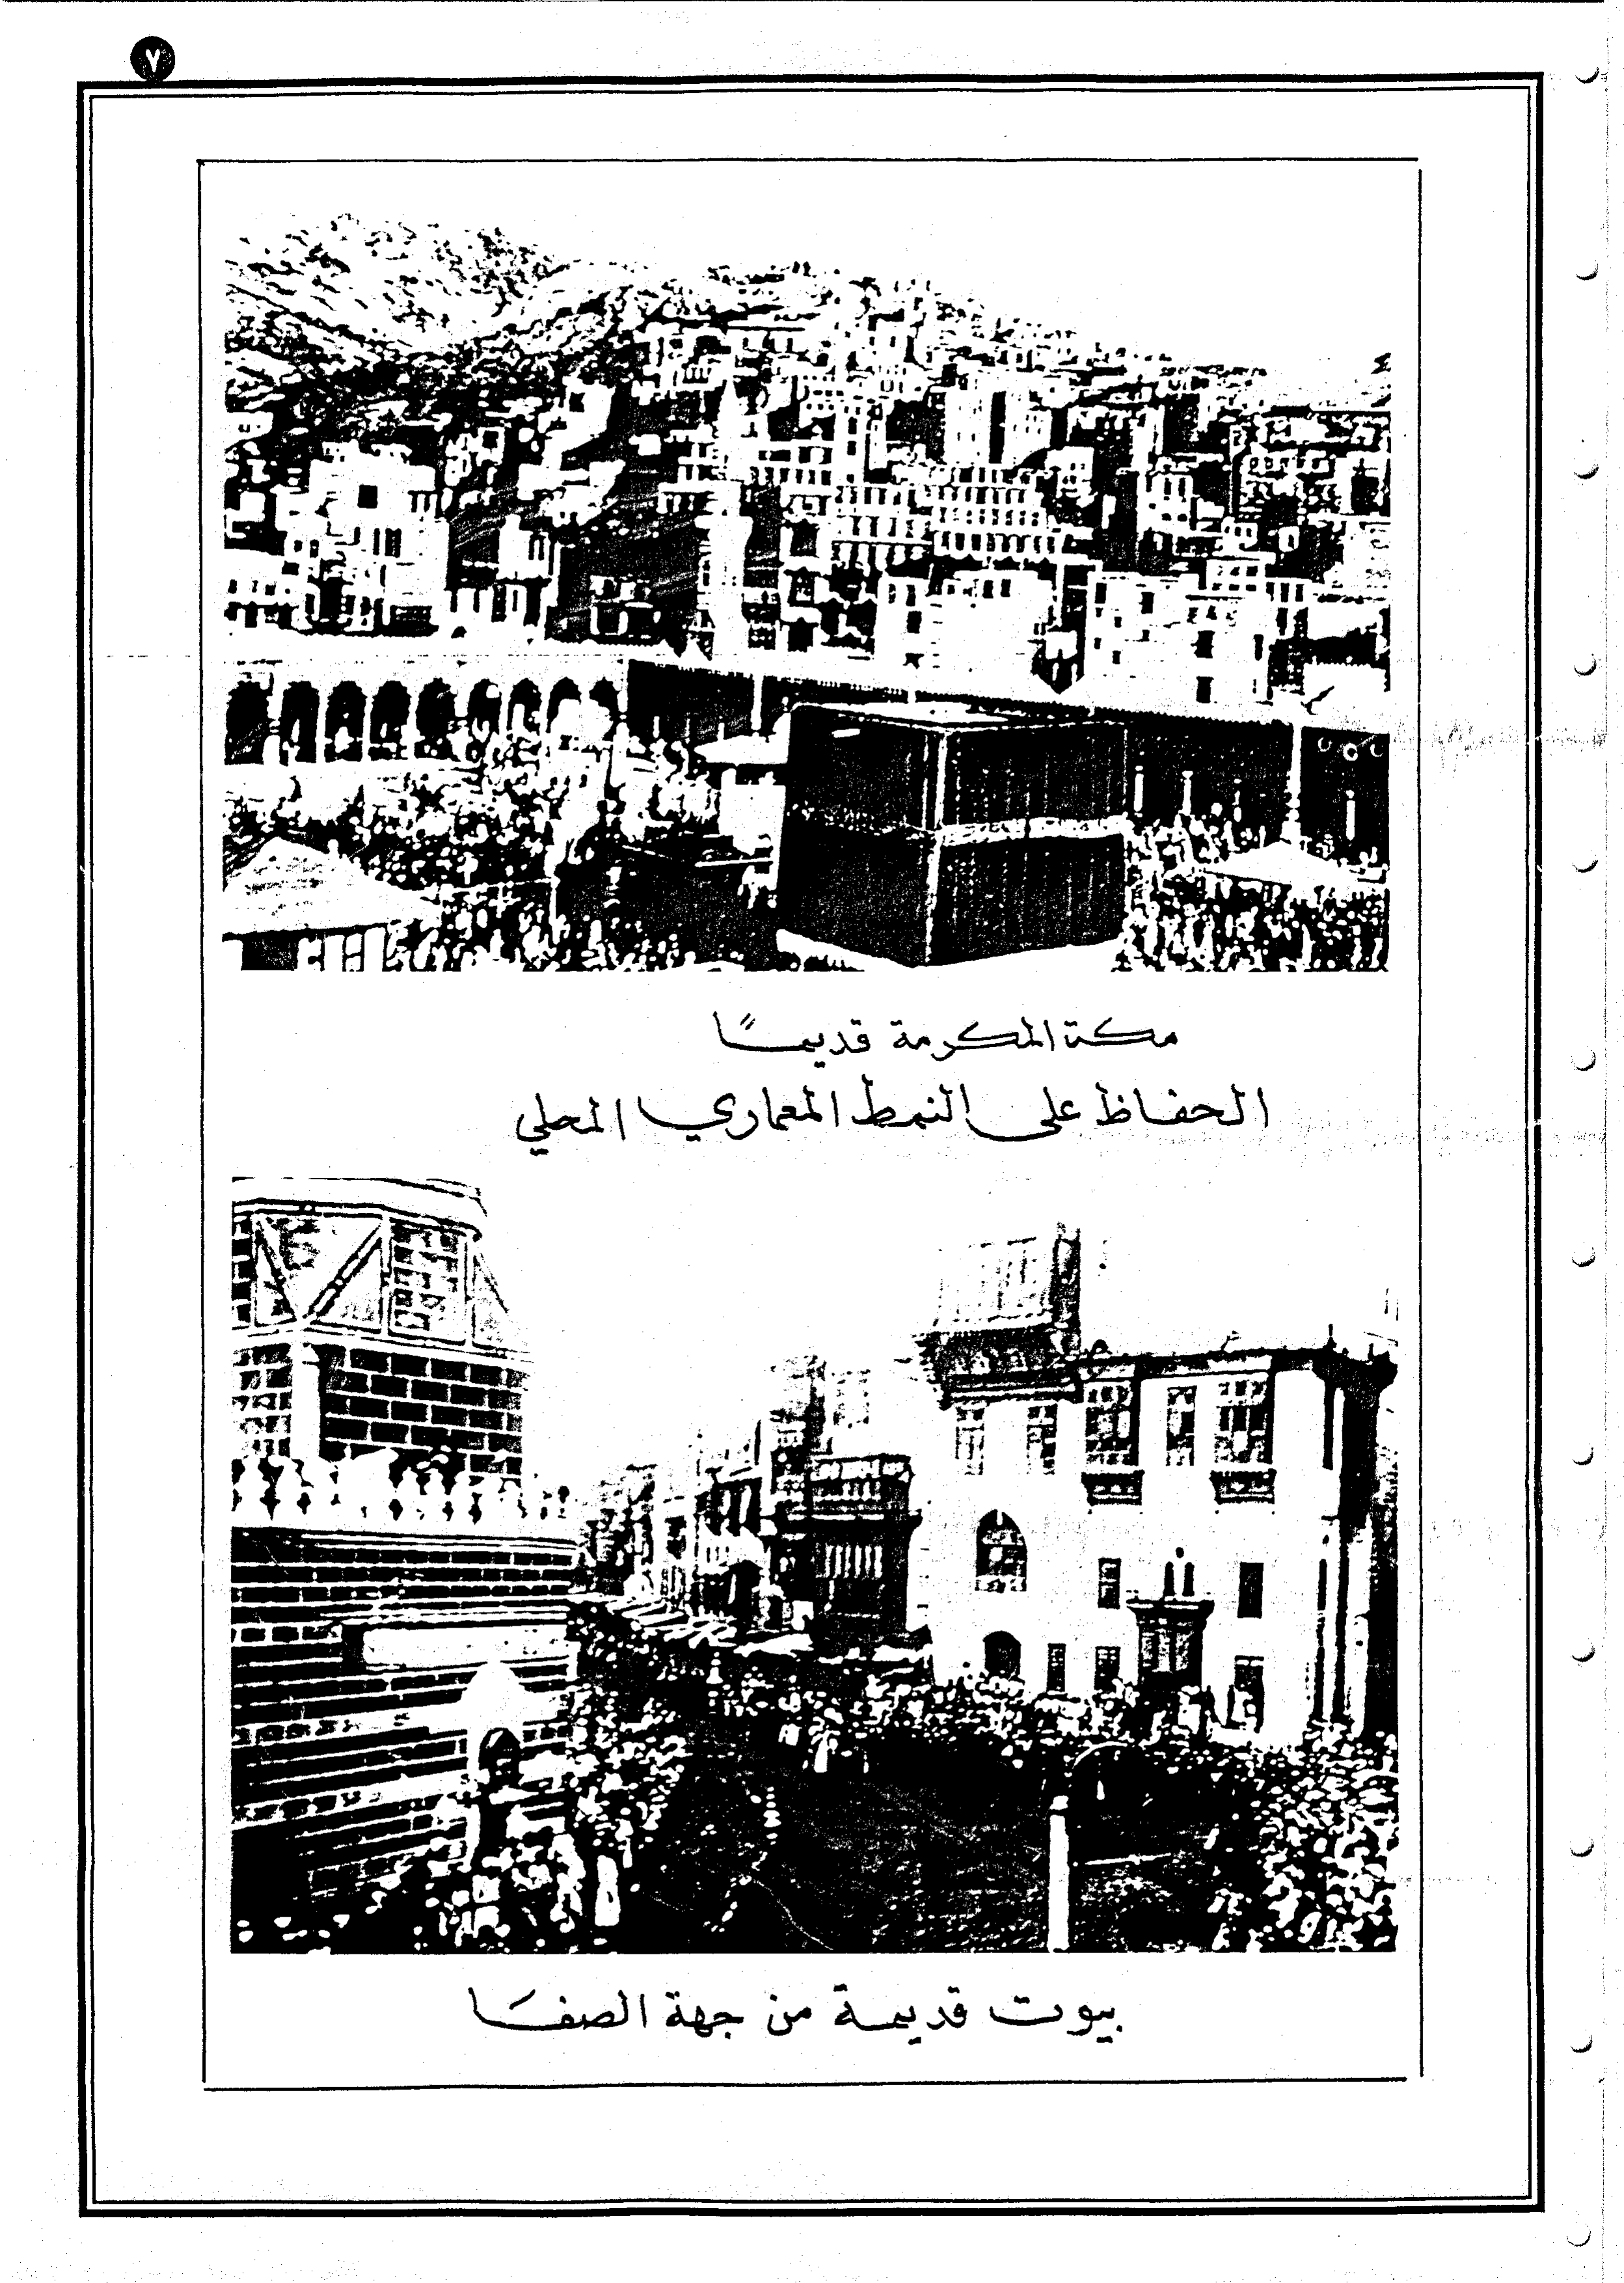 ٧
مكة المكرمة قديمًا
الحفاظ على النمط المعماري المحلي
بيوت قديمة من جهة الصفَا